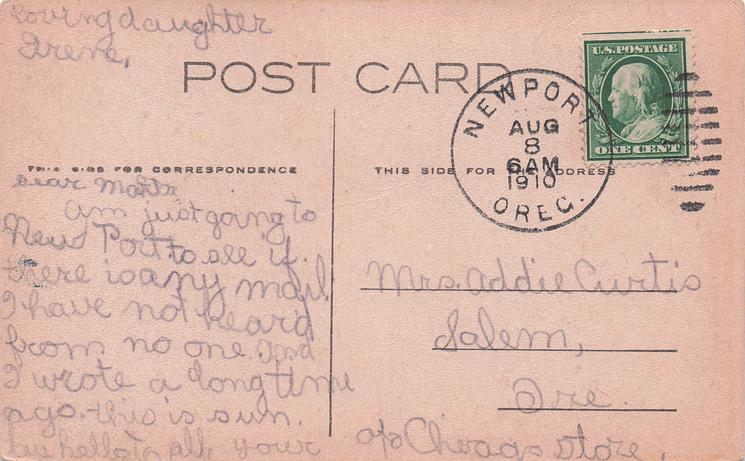 loving daughter
Irene,
POST CARD
U.S. POSTAGE
ONE CENT
NEWPORT
AUG
8
6AM
1910
OREG.
THIS SIDE FOR CORRESPONDENCE
THIS SIDE FOR THE ADDRESS
Dear Mama
am just going to
New Port to see if
there is any mail
I have not heard
from no one. and
I wrote a long time
ago. this is sun.
hello to all, your
Mrs. Addie Curtis
Salem,
Ore.
c/o Chicago store,